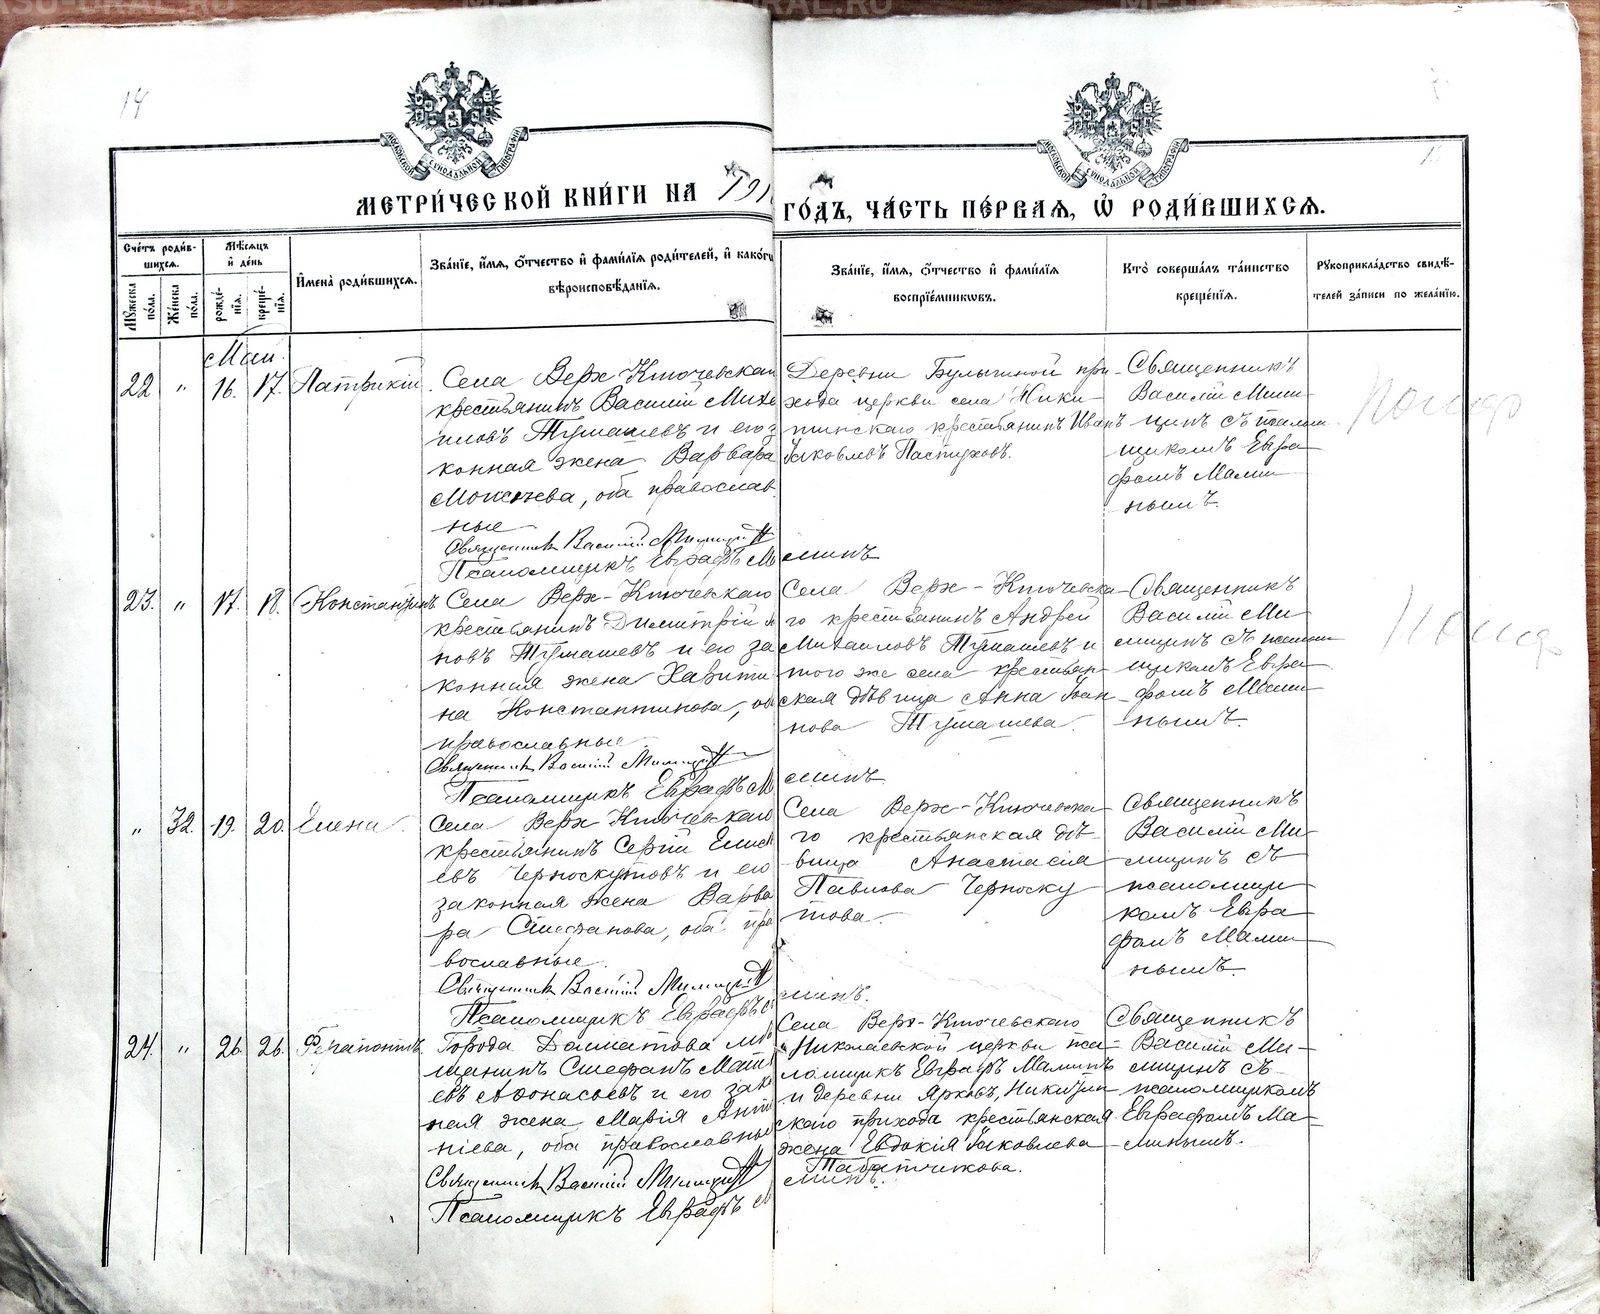 14
МОСКОВСКОЙ СѴНОДАЛЬНОЙ ТИПОГРАФІИ
МОСКОВСКОЙ СѴНОДАЛЬНОЙ ТИПОГРАФІИ
МЕТРИ́ЧЕСКОЙ КНИ́ГИ НА 191
ГО́ДЪ, ЧА́СТЬ ПЕ́РВАѦ, Ѿ РОДИ́ВШИХСѦ.
Сче́тъ роди́в-
шихсѧ.
Мѣ́сѧцъ
и҆ де́нь
И҆мена̀ роди́вшихсѧ.
Зва́нїе, и҆́мѧ, ѻ҆́тчество и҆ фами́лїѧ роди́телей, и҆ како́гѡ
вѣроисповѣ́данїѧ.
Зва́нїе, и҆́мѧ, ѻ҆́тчество и҆ фами́лїѧ
воспрїе́мникѡвъ.
Кто̀ соверша́лъ та́инство
креще́нїѧ.
Рꙋкоприкла́дство свидѣ́-
телей за́писи по жела́нїю.
Мꙋ́жеска
по́ла.
Же́нска
по́ла.
рожде́-
нїѧ.
креще́-
нїѧ.
Май.
22 „ 16. 17. Патрикій.
Села Верх Ключевскаго
крестьянинъ Василій Миха
иловъ Тумашевъ и его за
конная жена Варвара
Моисеева, оба православ
ные
Священник Василій Милицин
Псаломщикъ Евграфъ Ма
Деревни Булыгиной при-
хода церкви села Ники-
тинскаго крестьянинъ Иванъ
Яковлевъ Пастуховъ.
минъ
Священникъ
Василій Мили
цинъ съ псалом
щикомъ Евгра
фомъ Мами
нымъ.
23. „ 17. 18. Константинъ
Села Верх-Ключевскаго
крестьянинъ Димитрій
новъ Тумашевъ и его за
конная жена Харити
на Константинова, оба
православные.
Священник Василій Милицин
Псаломщикъ Евграфъ Ма
Села Верх-Ключевска
го крестьянинъ Андрей
Михаиловъ Тумашевъ и
того же села крестьян
ская дѣвица Анна Іоан
нова Тумашева.
минъ
Священникъ
Василій Ми-
лицинъ съ псалом
щикомъ Евгра
фомъ Мами
нымъ.
„ 32. 19. 20. Елена.
Села Верх Ключевскаго
крестьянинъ Сергій Елисе
евъ Черноскутовъ и его
законная жена Варва
ра Стефанова, оба пра
вославные.
Священник Василій Милицин
Псаломщикъ Евграфъ
Села Верх-Ключевска
го крестьянская дѣ-
вица Анастасія
Павлова Черноску
това.
минъ.
Священникъ
Василій Ми-
лицинъ съ
псаломщи
комъ Евгра
фомъ Мами
нымъ.
24. „ 26. 26. Ферапонтъ.
Города Далматова мѣ
щанинъ Стефанъ Матѳ
евъ Аѳонасьевъ и его закон
ная жена Марія Анти
піева, оба православные
Священник Василій Милицин
Псаломщикъ Евграфъ
Села Верх-Ключевскаго
Николаевской церкви пса-
ломщикъ Евграфъ Маминъ
и деревни Ярковъ, Никитин
скаго прихода крестьянская
жена Евдокія Яковлева
Табатчикова.
минъ.
Священникъ
Василій Ми-
лицинъ съ
псаломщикомъ
Евграфомъ Ма-
минымъ.